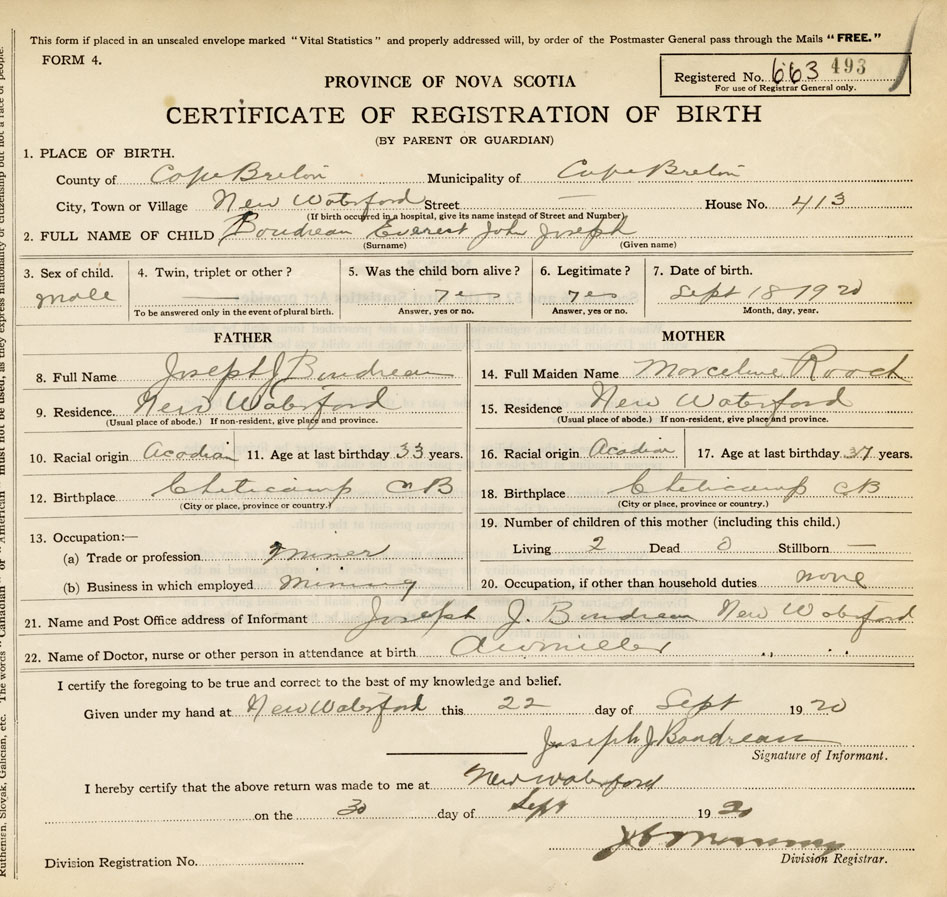 This form if placed in an unsealed envelope marked "Vital Statistics" and properly addressed will, by order of the Postmaster General pass through the Mails "FREE."
FORM 4.
Registered No. 663 493
For use of Registrar General only.
PROVINCE OF NOVA SCOTIA
CERTIFICATE OF REGISTRATION OF BIRTH
(BY PARENT OR GUARDIAN)
1. PLACE OF BIRTH.
County of Cape Breton Municipality of Cape Breton
City, Town or Village New Waterford Street — House No. 413
(If birth occurred in a hospital, give its name instead of Street and Number)
2. FULL NAME OF CHILD Boudreau Everest John Joseph
(Surname) (Given name)
3. Sex of child. 4. Twin, triplet or other? 5. Was the child born alive? 6. Legitimate? 7. Date of birth.
male — yes yes Sept 18 1920
To be answered only in the event of plural birth. Answer, yes or no. Answer, yes or no. Month, day, year.
FATHER
8. Full Name Joseph J Boudreau
9. Residence. New Waterford
(Usual place of abode.) If non-resident, give place and province.
10. Racial origin Acadian 11. Age at last birthday 33 years.
12. Birthplace Cheticamp CB
(City or place, province or country.)
13. Occupation:—
(a) Trade or profession miner
(b) Business in which employed mining
MOTHER
14. Full Maiden Name Marceline Roach
15. Residence New Waterford
(Usual place of abode.) If non-resident, give place and province.
16. Racial origin Acadian 17. Age at last birthday 37 years.
18. Birthplace Cheticamp CB
(City or place, province or country.)
19. Number of children of this mother (including this child.)
Living 2 Dead 0 Stillborn —
20. Occupation, if other than household duties none
21. Name and Post Office address of Informant Joseph J. Boudreau New Waterford
22. Name of Doctor, nurse or other person in attendance at birth
I certify the foregoing to be true and correct to the best of my knowledge and belief.
Given under my hand at New Waterford this 22 day of Sept 1920
Joseph J Boudreau
Signature of Informant.
I hereby certify that the above return was made to me at New Waterford
on the 30 day of Sept 1920
Division Registrar.
Division Registration No.
Ruthenian, Slovak, Galician, etc. The words "Canadian" or "American" must not be used, as they express nationality or citizenship but not a race of people.